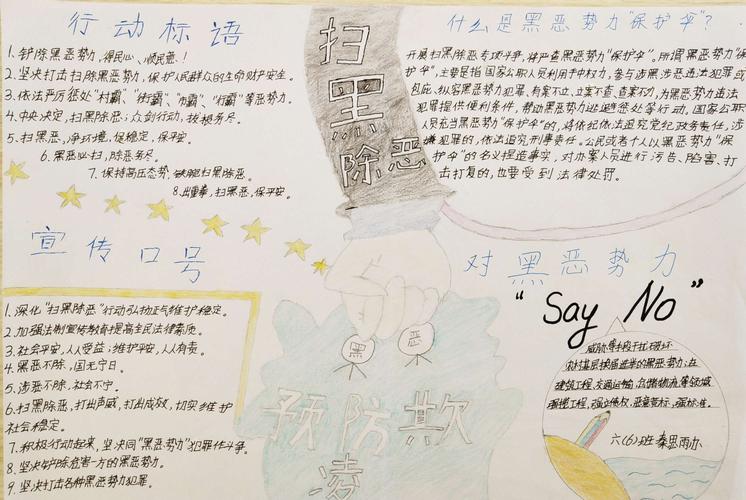 行动标语
1. 铲除黑恶势力,得民心、顺民意!
2. 坚决打击扫除黑恶势力,保护人民群众的生命财产安全。
3. 依法严厉惩处"村霸"、"街霸"、"市霸"、"行霸"等恶势力。
4. 中央决定,扫黑除恶:众剑行动,拔根务尽。
5. 扫黑恶,净环境,促稳定,保平安。
6. 黑恶必扫,除恶务尽。
7. 保持高压态势,扫黑除恶。
8. 出重拳,扫黑恶,保平安。
扫黑除恶
什么是黑恶势力"保护伞"?
开展扫黑除恶专项斗争,将严查黑恶势力"保护伞"。所谓黑恶势力"保
护伞",主要是指国家公职人员利用手中权力,参与涉黑涉恶违法犯罪或
包庇、纵容黑恶势力犯罪,有案不立、立案不查、查案不力,为黑恶势力违法
犯罪提供便利条件,帮助黑恶势力逃避惩处等行动,国家公职
人员充当黑恶势力"保护伞"的,将依纪依法追究党纪政务责任,涉
嫌犯罪的,依法追究刑事责任。公民或者个人以黑恶势力"保
护伞"的名义捏造事实,对办案人员进行污告、陷害、打
击打复的,也要受到法律处罚。
宣传口号
1. 深化"扫黑除恶"行动弘扬正气维护稳定。
2. 加强法制宣传教育提高全民法律素质。
3. 社会平安,人人受益;维护平安,人人有责。
4. 黑恶不除,国无宁日。
5. 涉恶不除,社会不宁。
6. 扫黑除恶,打出声威,打出成效,切实维护
社会稳定。
7. 积极行动起来,坚决同"黑恶势力"犯罪作斗争。
8. 坚决铲除危害一方的黑恶势力。
9. 坚决打击各种黑恶势力犯罪。
黑
恶
预防欺
凌
对黑恶势力
"Say No"
建筑工程、交通运输、仓储物流等领域
强揽工程、
六(6)班 秦思雨办